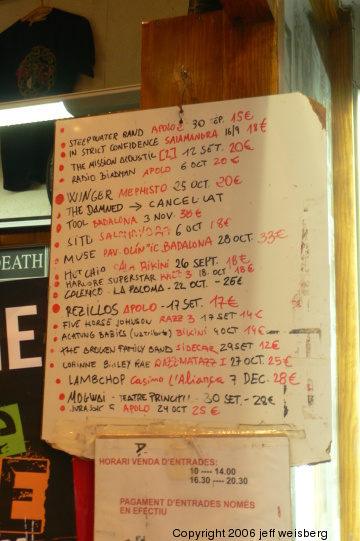 DEATH
STEEPWATER BAND APOLO 2 30 SEP. 15€
IN STRICT CONFIDENCE SALAMANDRA 16/9 18€
THE MISSION ACOUSTIC [2] 12 SET. 20€
RADIO BIRDMAN APOLO 6 OCT 20€
WINGER MEPHISTO 25 OCT. 20€
THE DAMNED → CANCEL·LAT
TOOL BADALONA 3 NOV. 30€
6 OCT 18€
MUSE PAV. OLÍMPIC BADALONA 28 OCT. 33€
BIKINI 26 SEPT. 18€
HARCORE SUPERSTAR RAZZ 3 18. OCT 18€
CALEXICO - LA PALOMA - 22 OCT. - 25€
REZILLOS APOLO - 17 SET. 17€
FIVE HORSE JOHNSON RAZZ 3 17 SET 14€
ACHTUNG BABIES BIKINI 4 OCT 14€
THE BROKEN FAMILY BAND SIDECAR 29 SET 12€
CORINNE BAILEY RAE RAZZMATAZZ 1 27 OCT 25€
LAMBCHOP Casino L'Aliança 7 DEC. 28€
MOGWAI - TEATRE PRINCIPAL - 30 SET. - 28€
JURASSIC 5 APOLO 24 OCT 25€
HORARI VENDA D'ENTRADES:
10 ---- 14.00
16.30 ---- 20.30
PAGAMENT D'ENTRADES NOMÉS
EN EFECTIU
Copyright 2006 jeff weisberg